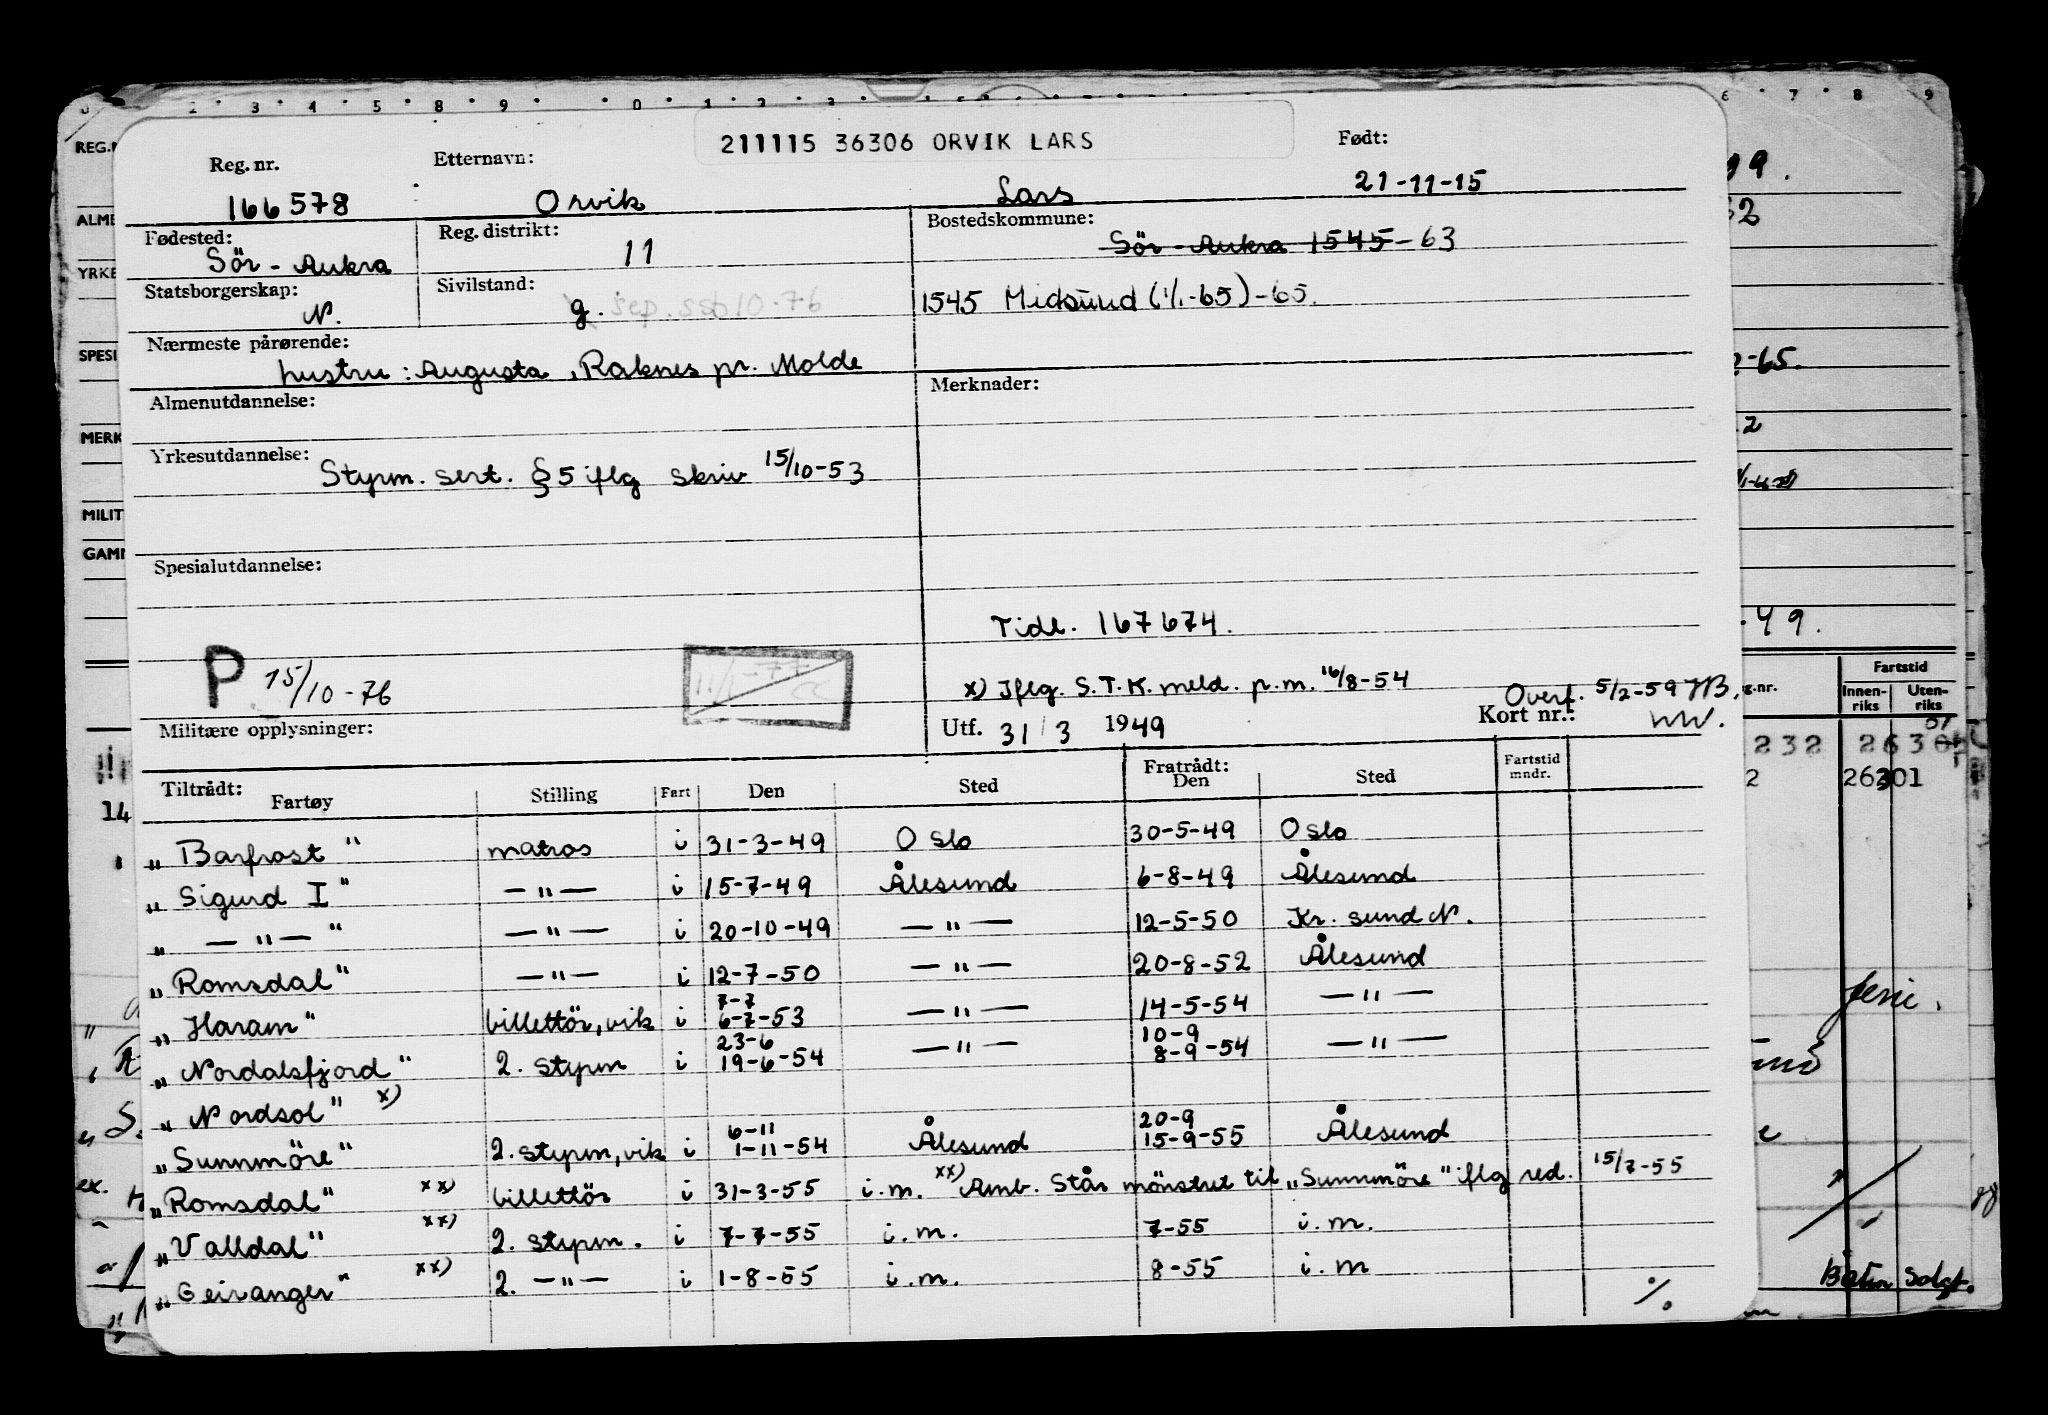 211115 36306 ORVIK LARS
Reg. nr. Etternavn: Født:
166578 Orvik Lars 21-11-15
Fødested: Reg. distrikt: Bostedskommune:
Sör-Aukra 11 Sör-Aukra 1545-63
Statsborgerskap: Sivilstand:
N. g. sep. 10-76 1545 Midsund (1/1-65)-65.
Nærmeste pårørende:
hustru: Augusta, Raknes pr. Molde
Almenutdannelse: Merknader:
Yrkesutdannelse:
Styrm. sert. § 5 iflg skriv 15/10-53
Spesialutdannelse:
Tidl. 167674.
P 15/10-76 11/1-77
x) Iflg. S.T.K. meld. p.m. 16/8-54 Overf. 5/2-59
Militære opplysninger: Utf. 31/3 1949 Kort nr.:
Tiltrådt: Fratrådt:
Fartøy Stilling Fart Den Sted Den Sted Fartstid mndr.
„Barfrost" matros i 31-3-49 Oslo 30-5-49 Oslo
„Sigurd I" —"— i 15-7-49 Ålesund 6-8-49 Ålesund
„ —"— " —"— i 20-10-49 —"— 12-5-50 Kr. sund N.
„Romsdal" —"— i 12-7-50 —"— 20-8-52 Ålesund
7-7
„Haram" billettör, vik i 6-7-53 —"— 14-5-54 —"—
23-6 10-9
„Nordalsfjord" 2. styrm i 19-6-54 —"— 8-9-54 —"—
„Nordsol" x)
6-11 20-9
„Sunnmöre" 2. styrm, vik i 1-11-54 Ålesund 15-9-55 Ålesund
„Romsdal" xx) billettör i 31-3-55 i.m. xx) Amb. Står mönstret til „Sunnmöre" iflg red. 15/7-55
„Valldal" xx) 2. styrm. i 7-7-55 i.m. 7-55 i.m.
„Geiranger" xx) 2. —"— i 1-8-55 i.m. 8-55 i.m
%
Fartstid
Innen-riks Uten-riks
232
26301
Båten solgt.